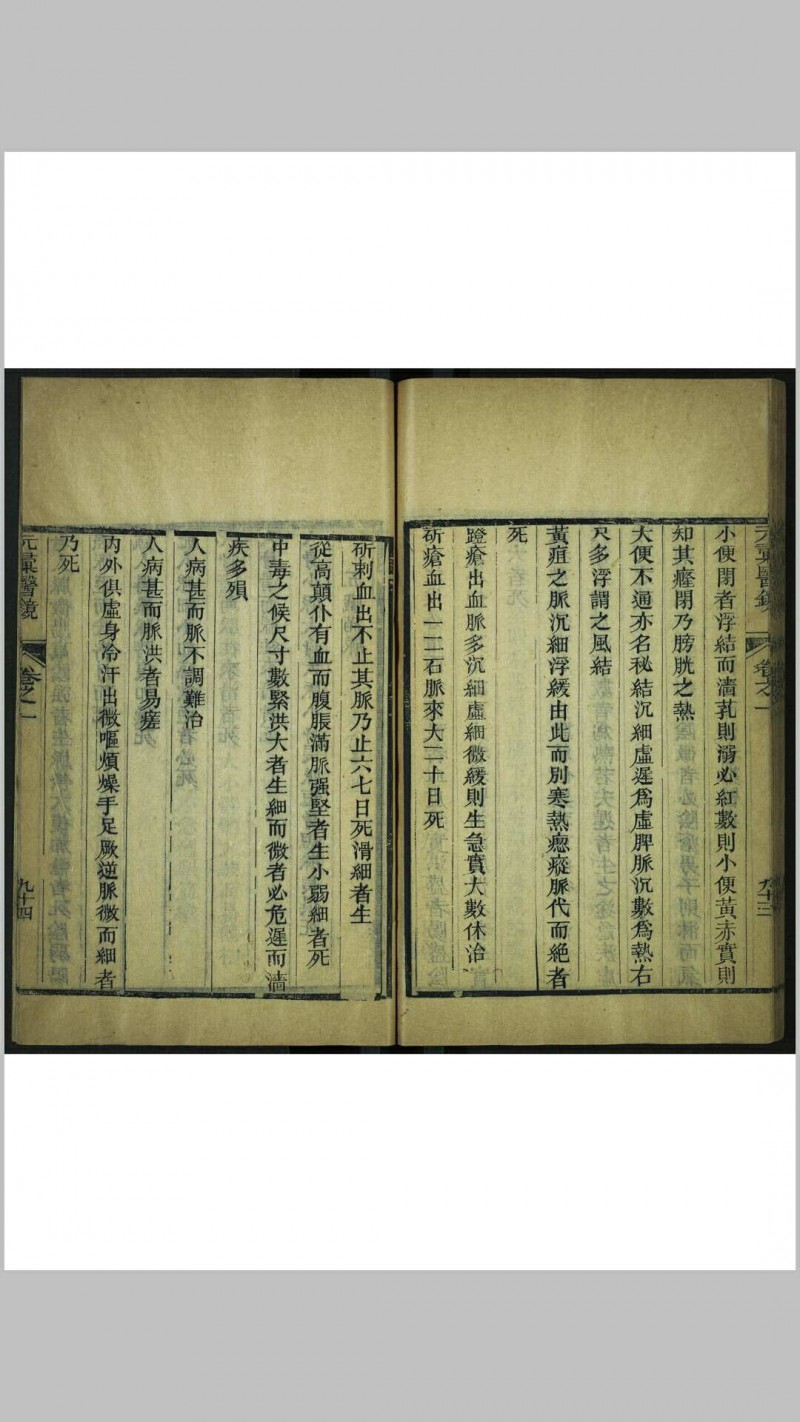 元彙醫鏡
卷之一
九十三
小便閉者浮結而濇芤則溺必紅數則小便黃赤實則
知其癃閉乃膀胱之熱
大便不通亦名秘結沉細虛遲爲虛脾脈沉數爲熱右
尺多浮謂之風結
黃疸之脈沉細浮緩由此而別寒熱瘛瘲脈代而絕者
死
蹬瘡出血脈多沉細虛細微緩則生急實大數休治
斫瘡血出一二石脈來大二十日死
斫刺血出不止其脈乃止六七日死滑細者生
從高顛仆有血而腹脹滿脈强堅者生小弱細者死
中毒之候尺寸數緊洪大者生細而微者必危遲而濇
疾多殞
人病甚而脈不調難治
人病甚而脈洪者易瘥
內外俱虛身冷汗出微嘔煩燥手足厥逆脈微而細者
乃死
元彙醫鏡
卷之一
九十四